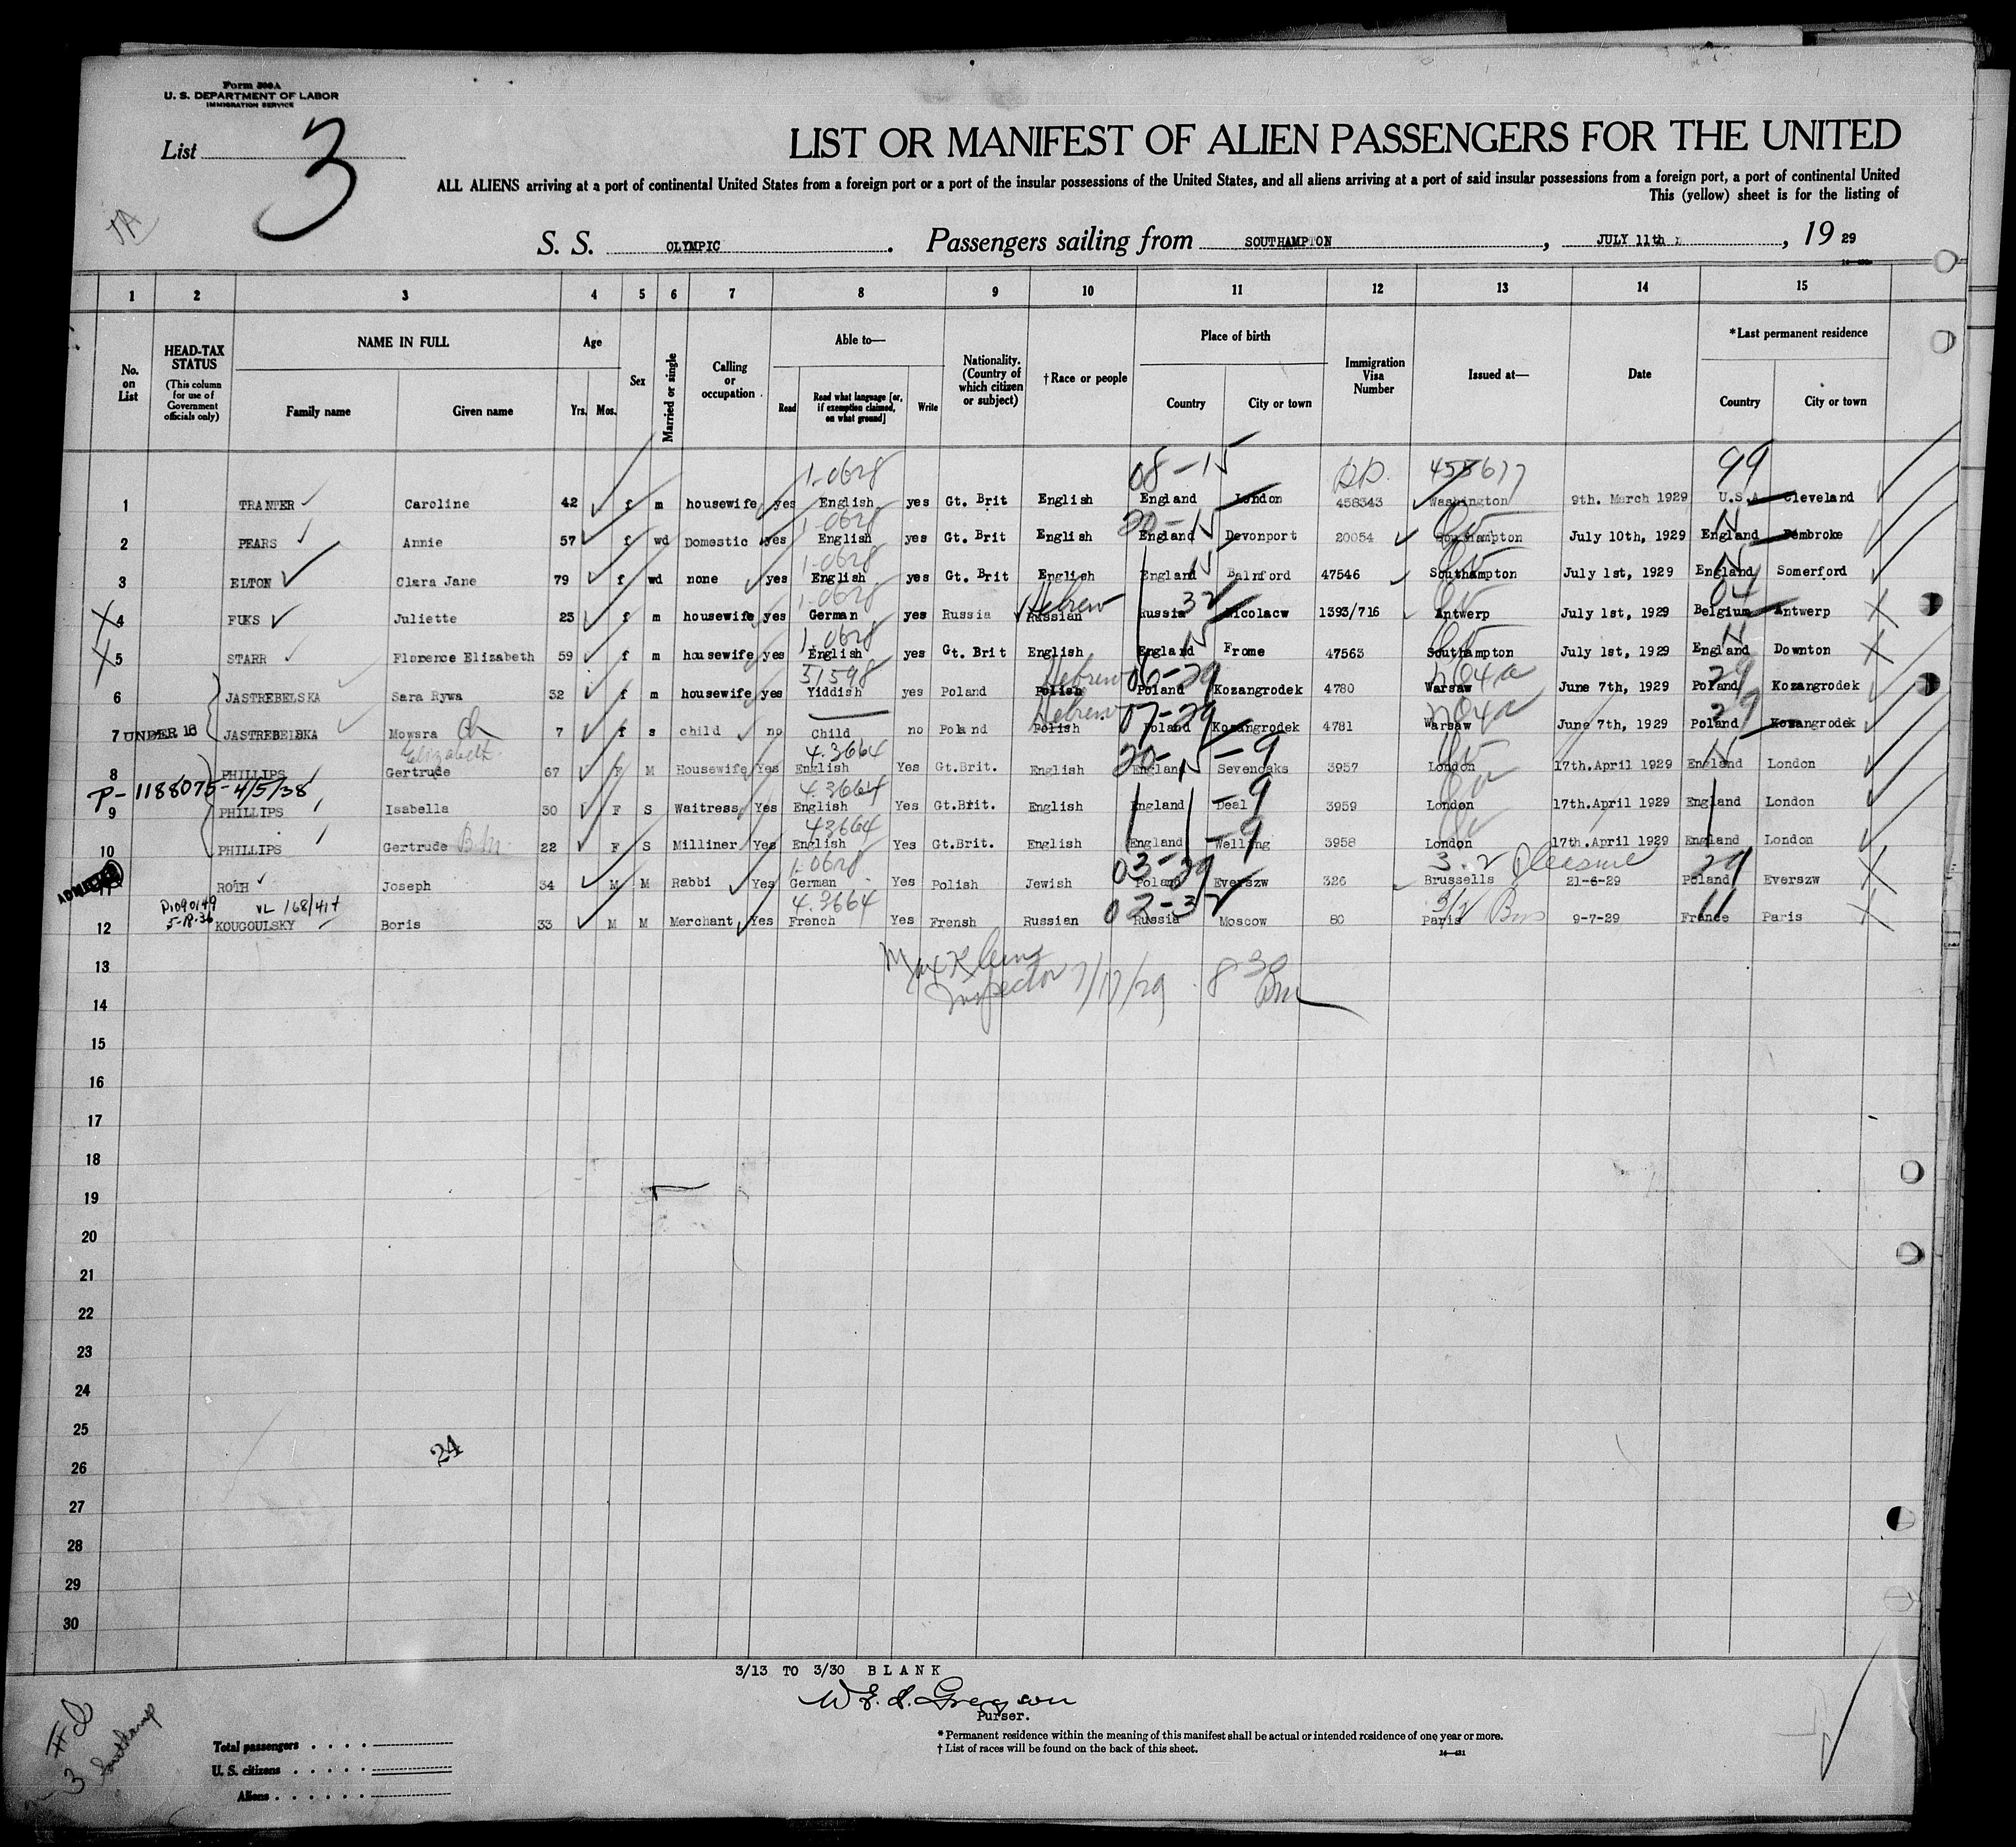 Form 500A
U. S. DEPARTMENT OF LABOR
IMMIGRATION SERVICE
List 3
LIST OR MANIFEST OF ALIEN PASSENGERS FOR THE UNITED
ALL ALIENS arriving at a port of continental United States from a foreign port or a port of the insular possessions of the United States, and all aliens arriving at a port of said insular possessions from a foreign port, a port of continental United
This (yellow) sheet is for the listing of
S. S. OLYMPIC . Passengers sailing from SOUTHAMPTON , JULY 11th , 19 29
1 2 3 4 5 6 7 8 9 10 11 12 13 14 15
No. on List
HEAD-TAX STATUS (This column for use of Government officials only)
NAME IN FULL Family name Given name
Age Yrs. Mos.
Sex
Married or single
Calling or occupation
Able to— Read Read what language [or, if exemption claimed, on what ground] Write
Nationality. (Country of which citizen or subject)
†Race or people
Place of birth Country City or town
Immigration Visa Number
Issued at—
Date
*Last permanent residence Country City or town
1-0628 08-15 458677 99
1 TRANTER Caroline 42 f m housewife yes English yes Gt. Brit English England London 458343 Washington 9th. March 1929 U.S.A Cleveland
1-0628
2 PEARS Annie 57 f wd Domestic yes English yes Gt. Brit English England Devonport 20054 Southampton July 10th, 1929 England Pembroke
1-0628
3 ELTON Clara Jane 79 f wd none yes English yes Gt. Brit English England Balnford 47546 Southampton July 1st, 1929 England Somerford
1-0628 Hebrew 32 04
4 FUKS Juliette 23 f m housewife yes German yes Russia Russian Russia Nicolacw 1393/716 Antwerp July 1st, 1929 Belgium Antwerp
1-0628
5 STARR Florence Elizabeth 59 f m housewife yes English yes Gt. Brit English England Frome 47563 Southampton July 1st, 1929 England Downton
51598 Hebrew 06-29 29
6 JASTREBELSKA Sara Rywa 32 f m housewife yes Yiddish yes Poland Polish Poland Kozangrodek 4780 Warsaw June 7th, 1929 Poland Kozangrodek
Hebrew 07-29 29
7 UNDER 16 JASTREBELSKA Mowsra Ch 7 f s child no Child no Poland Polish Poland Kozangrodek 4781 Warsaw June 7th, 1929 Poland Kozangrodek
Elizabeth 4.3664
8 PHILLIPS Gertrude 67 F M Housewife Yes English Yes Gt.Brit. English England Sevenoaks 3957 London 17th.April 1929 England London
P-1188075-4/5/38 4.3664
9 PHILLIPS Isabella 30 F S Waitress Yes English Yes Gt.Brit. English England Deal 3959 London 17th.April 1929 England London
43664
10 PHILLIPS Gertrude 22 F S Milliner Yes English Yes Gt.Brit. English England Welling 3958 London 17th.April 1929 England London
1-0628 03-29 3.2 Pleasure 29
ADMITTED ROTH Joseph 34 M M Rabbi Yes German Yes Polish Jewish Poland Everszw 326 Brussells 21-6-29 Poland Everszw
P1090149 5-19-36 VL 168/414 4.3664 02-32 3/2 11
12 KOUGOULSKY Boris 33 M M Merchant Yes French Yes Frensh Russian Russia Moscow 80 Paris 9-7-29 France Paris
13
Inspector 7/17/29
14
15
16
17
18
19
20
21
22
23
24
25
24
26
27
28
29
30
3/13 TO 3/30 BLANK
W. E. S. Gregson
Purser.
*Permanent residence within the meaning of this manifest shall be actual or intended residence of one year or more.
†List of races will be found on the back of this sheet.
Total passengers
U. S. citizens
Aliens
3 Southamp